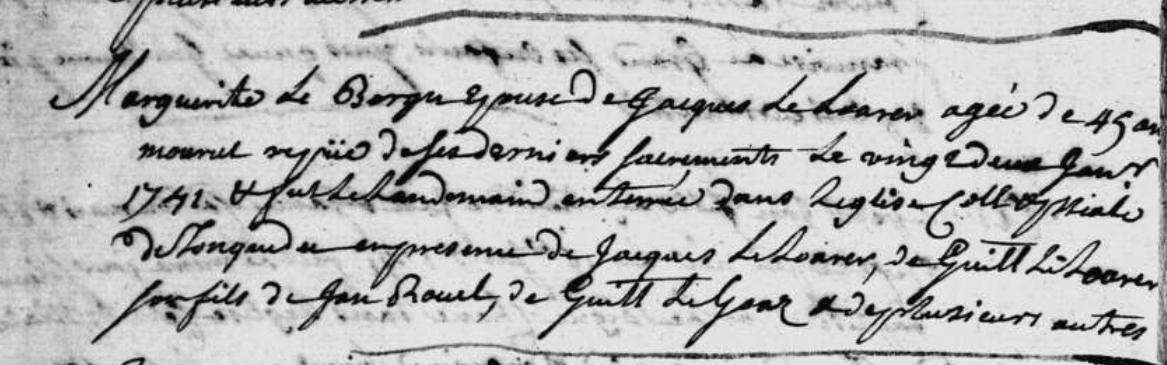 Marguerite Le Borgn Epouse de Jacques Le Loarer agée de 45 an
mourut reçüe de ses derniers sacrements Le vingt deux Janv
1741 & fut Le Landemain enterrée dans Leglise Coll
de en presence de Jacques Le Loarer, de Guill Le Loarer
son fils de Jan Rouel, de Guill Le Goaz & de plusieurs autres